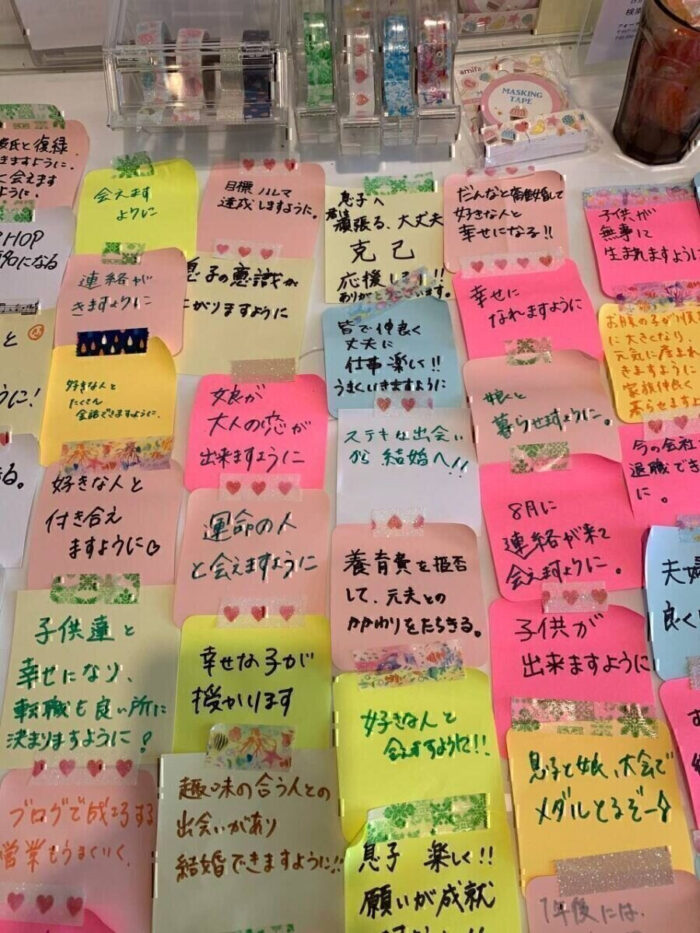 と復縁
きますように。
会えます
ように
会えます
ように
目標ノルマ
達成しますように。
息子へ
頑張る、大丈夫
克己
応援してる!!
ありがとうございます。
だんなと
好きな人と
幸せになる!!
子供が
無事に
生まれますように
MASKING
TAPE
HOP
になる
連絡が
きますように
息子の意識が
上がりますように
皆で仲良く
丈夫に
仕事楽しく!!
うまくいきますように
幸せに
なれますように
お腹の子が
に大きくなり、
元気に産まれ
きますように
家族仲良く
暮らせますように
と
に!
好きな人と
たくさん
会話できますように。
娘が
大人の恋が
出来ますように
ステキな出会い
から 結婚へ!!
娘と
暮らせますように。
今の会社
退職でき
に。
る。
好きな人と
付き合え
ますように♡
運命の人
と会えますように
養育費を拒否
して、元夫との
かかわりをたちきる。
8月に
連絡が来て
会えますように。
夫婦
良く
子供達と
幸せになり、
転職も良い所に
決まりますように!
幸せな子が
授かります
好きな人と
会えますように!!
子供が
出来ますように
ブログで成功する
営業もうまくいく。
趣味の合う人との
出会いがあり
結婚できますように!!
息子 楽しく!!
願いが成就
息子と娘、大会で
メダルとるぞー☆
1年後には、